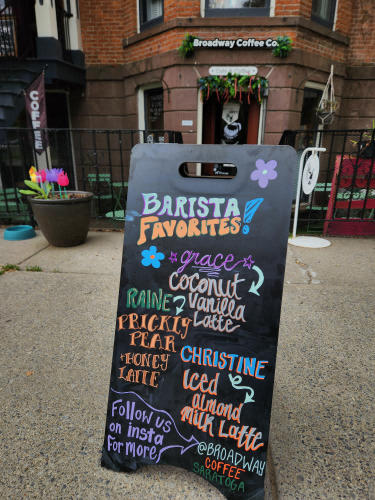 Broadway Coffee Co.
COFFEE
BARISTA
FAVORITES!
grace
Coconut
Vanilla
Latte
RAINE
PRICKLY
PEAR
+HONEY
LATTE
CHRISTINE
Iced
almond
Milk Latte
Follow us
on insta
For more
@BROADWAY
COFFEE
SARATOGA